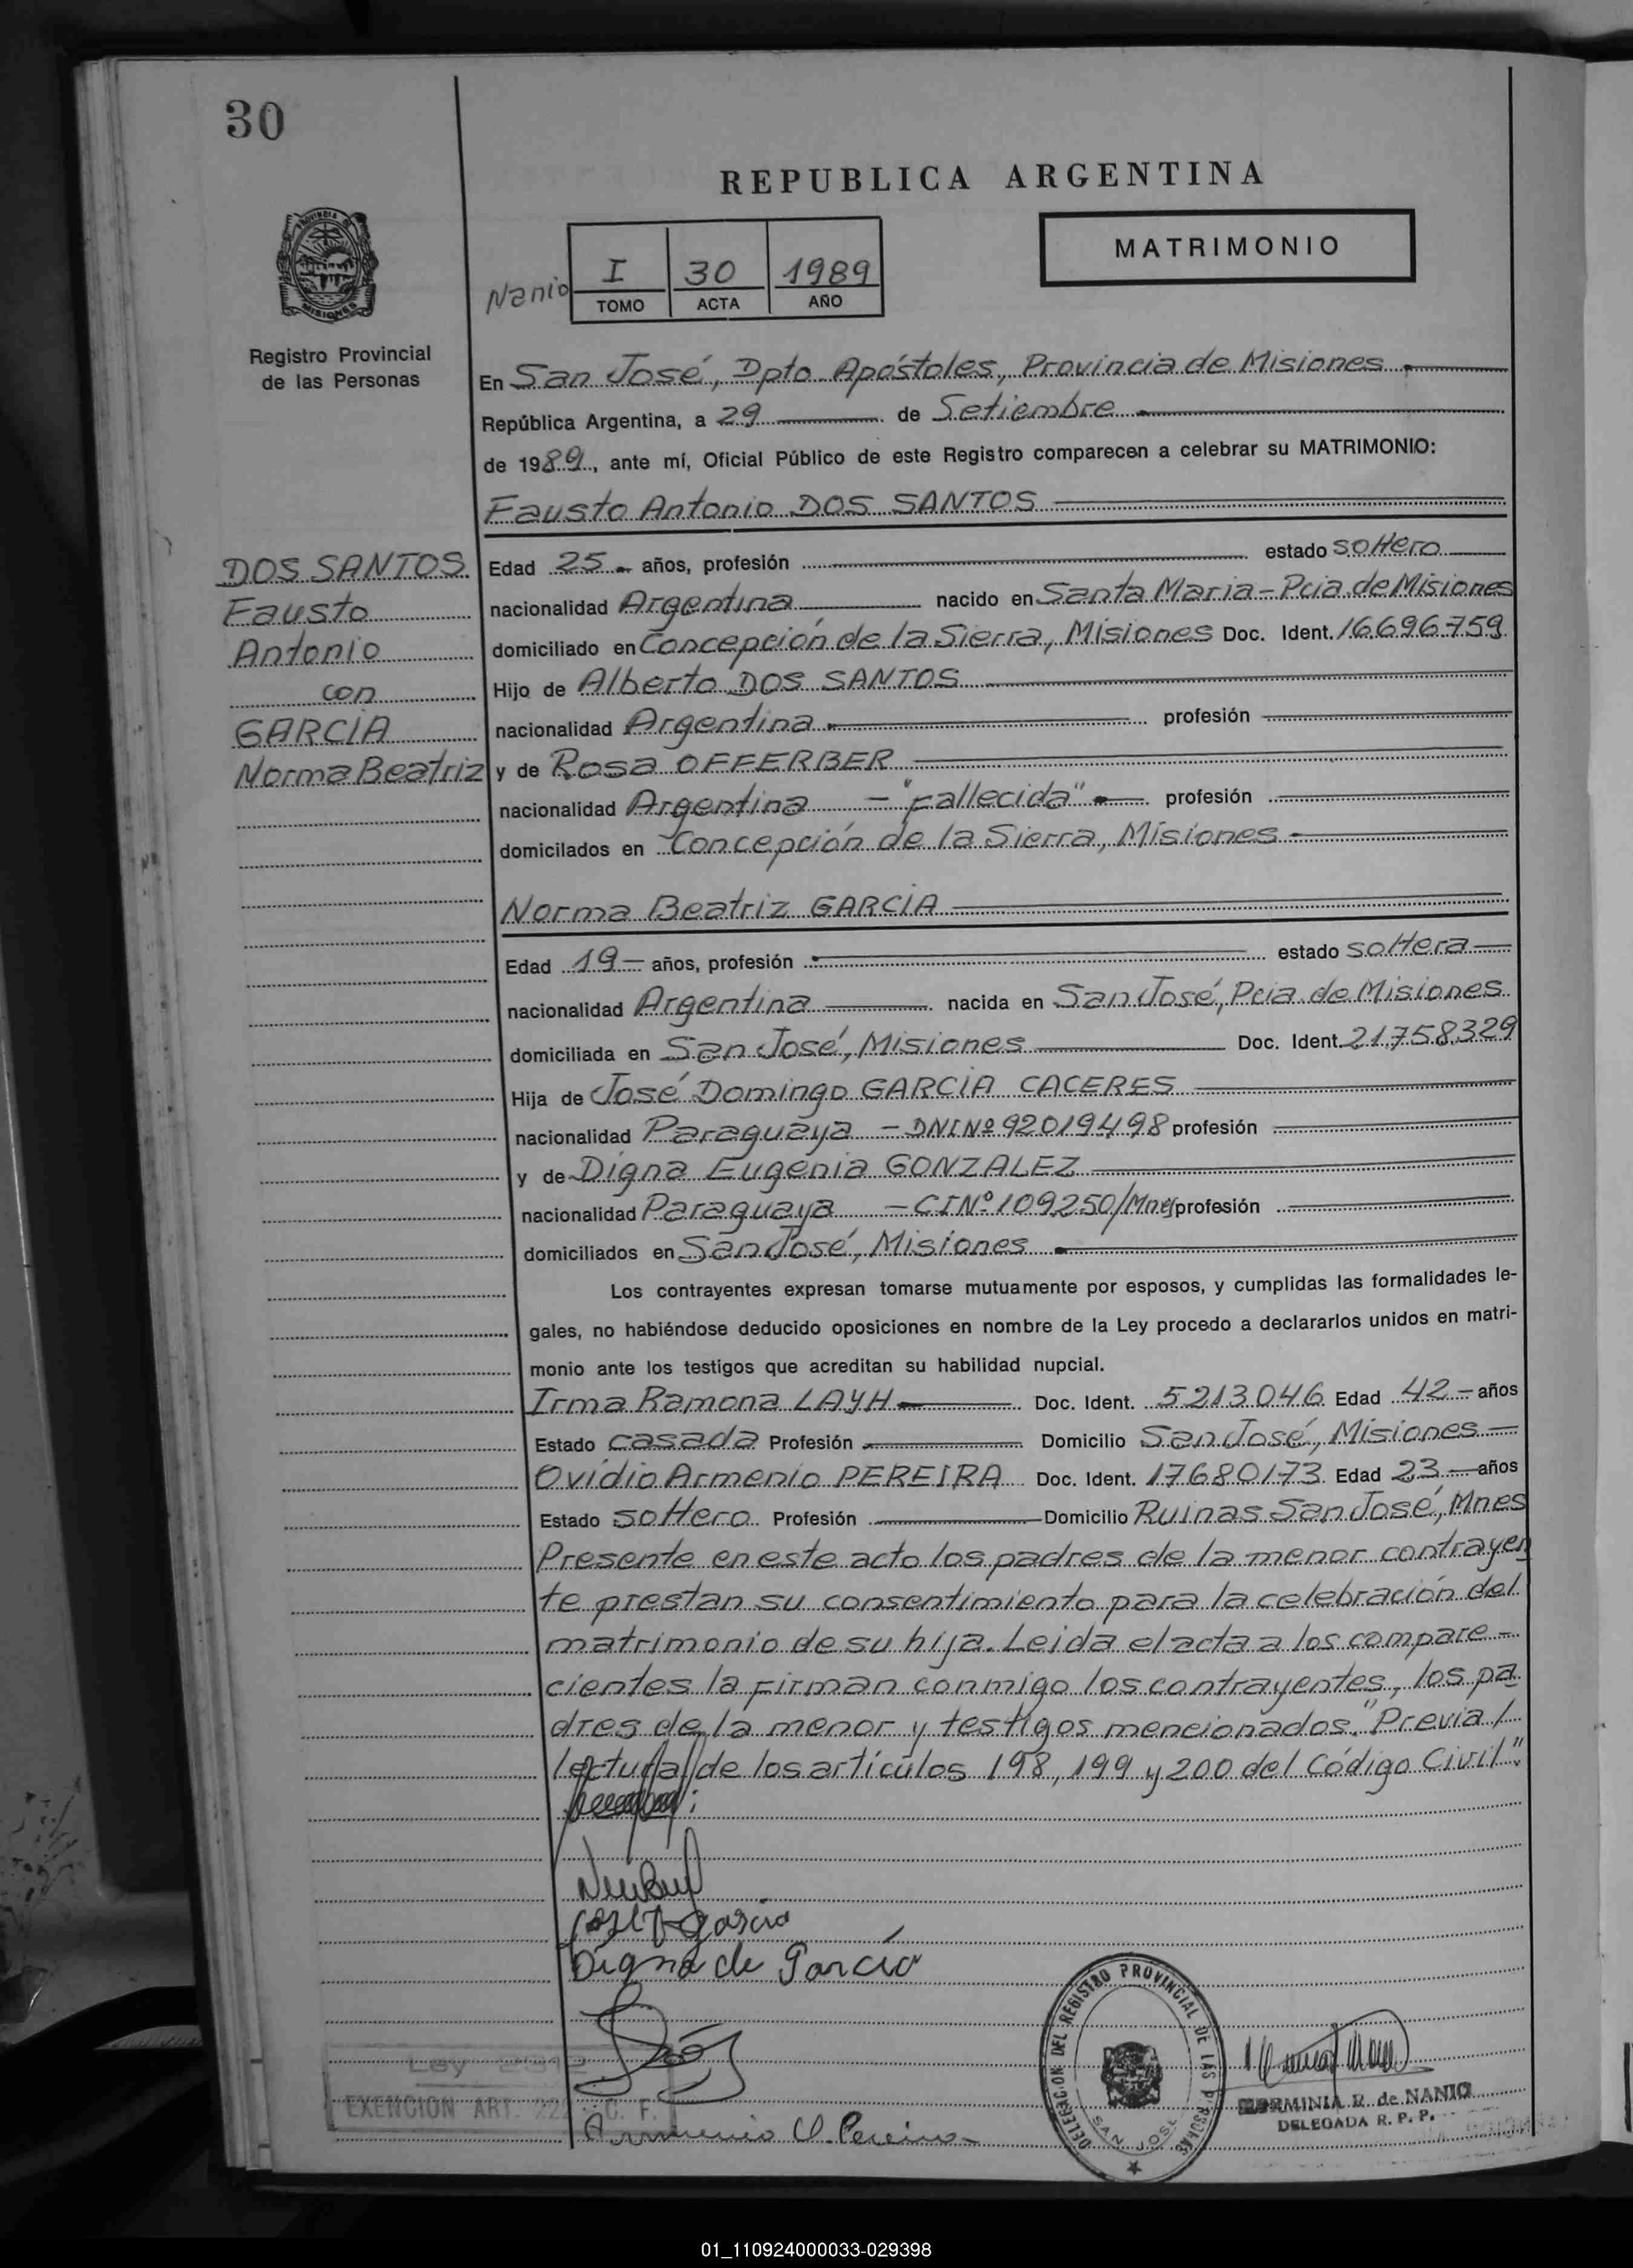 30
REPUBLICA ARGENTINA
PROVINCIA DE
MISIONES
Registro Provincial
de las Personas
Nanio
I 30 1989
TOMO ACTA AÑO
MATRIMONIO
En San José, Dpto Apóstoles, Provincia de Misiones
República Argentina, a 29 de Setiembre
de 1989, ante mí, Oficial Público de este Registro comparecen a celebrar su MATRIMONIO:
Fausto Antonio DOS SANTOS
DOS SANTOS
Fausto
Antonio
con
GARCIA
Norma Beatriz
Edad 25 años, profesión estado soltero
nacionalidad Argentina nacido en Santa Maria - Pcia de Misiones
domiciliado en Concepción de la Sierra, Misiones Doc. Ident. 16696759
Hijo de Alberto DOS SANTOS
nacionalidad Argentina profesión
y de Rosa OFFERBER
nacionalidad Argentina - "Fallecida" profesión
domicilados en Concepción de la Sierra, Misiones
Norma Beatriz GARCIA
Edad 19 años, profesión estado soltera
nacionalidad Argentina nacida en San José, Pcia de Misiones
domiciliada en San José, Misiones Doc. Ident. 21758329
Hija de José Domingo GARCIA CACERES
nacionalidad Paraguaya - DNI Nº 92019498 profesión
y de Digna Eugenia GONZALEZ
nacionalidad Paraguaya - CI Nº 109250/Mnes profesión
domiciliados en San José, Misiones
Los contrayentes expresan tomarse mutuamente por esposos, y cumplidas las formalidades le-
gales, no habiéndose deducido oposiciones en nombre de la Ley procedo a declararlos unidos en matri-
monio ante los testigos que acreditan su habilidad nupcial.
Irma Ramona LAYH Doc. Ident. 5213046 Edad 42 - años
Estado casada Profesión Domicilio San José, Misiones
Ovidio Armenio PEREIRA Doc. Ident. 17680173 Edad 23 - años
Estado soltero Profesión Domicilio Ruinas San José, Mnes
Presente en este acto los padres de la menor contrayen
te prestan su consentimiento para la celebración del
matrimonio de su hija. Leida el acta a los compare-
cientes la firman conmigo los contrayentes, los pa
dres de la menor y testigos mencionados. "Previa /
lectura de los artículos 198, 199 y 200 del Código Civil".
José D García
Digna de García
Armenio O. Pereira
Ley 2912
EXENCION ART. C. F.
DELEGACION DEL REGISTRO PROVINCIAL DE LAS PERSONAS
SAN JOSE
HERMINIA R. de NANIO
DELEGADA R. P. P.
01_110924000033-029398